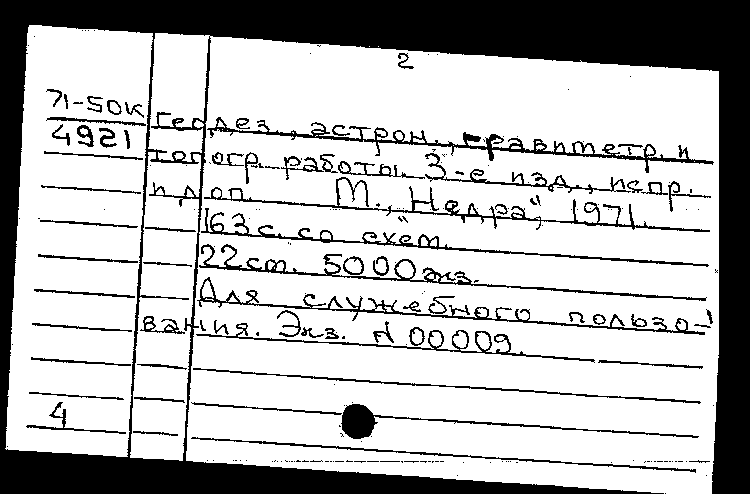 2
71-50К
4921
геодез., астрон., гравиметр. и
топогр. работы. 3-е изд., испр.
и доп. М., "Недра", 1971.
163 с. со схем.
22 см. 5000 экз.
Для служебного пользо-
вания. Экз. N 00009.
4